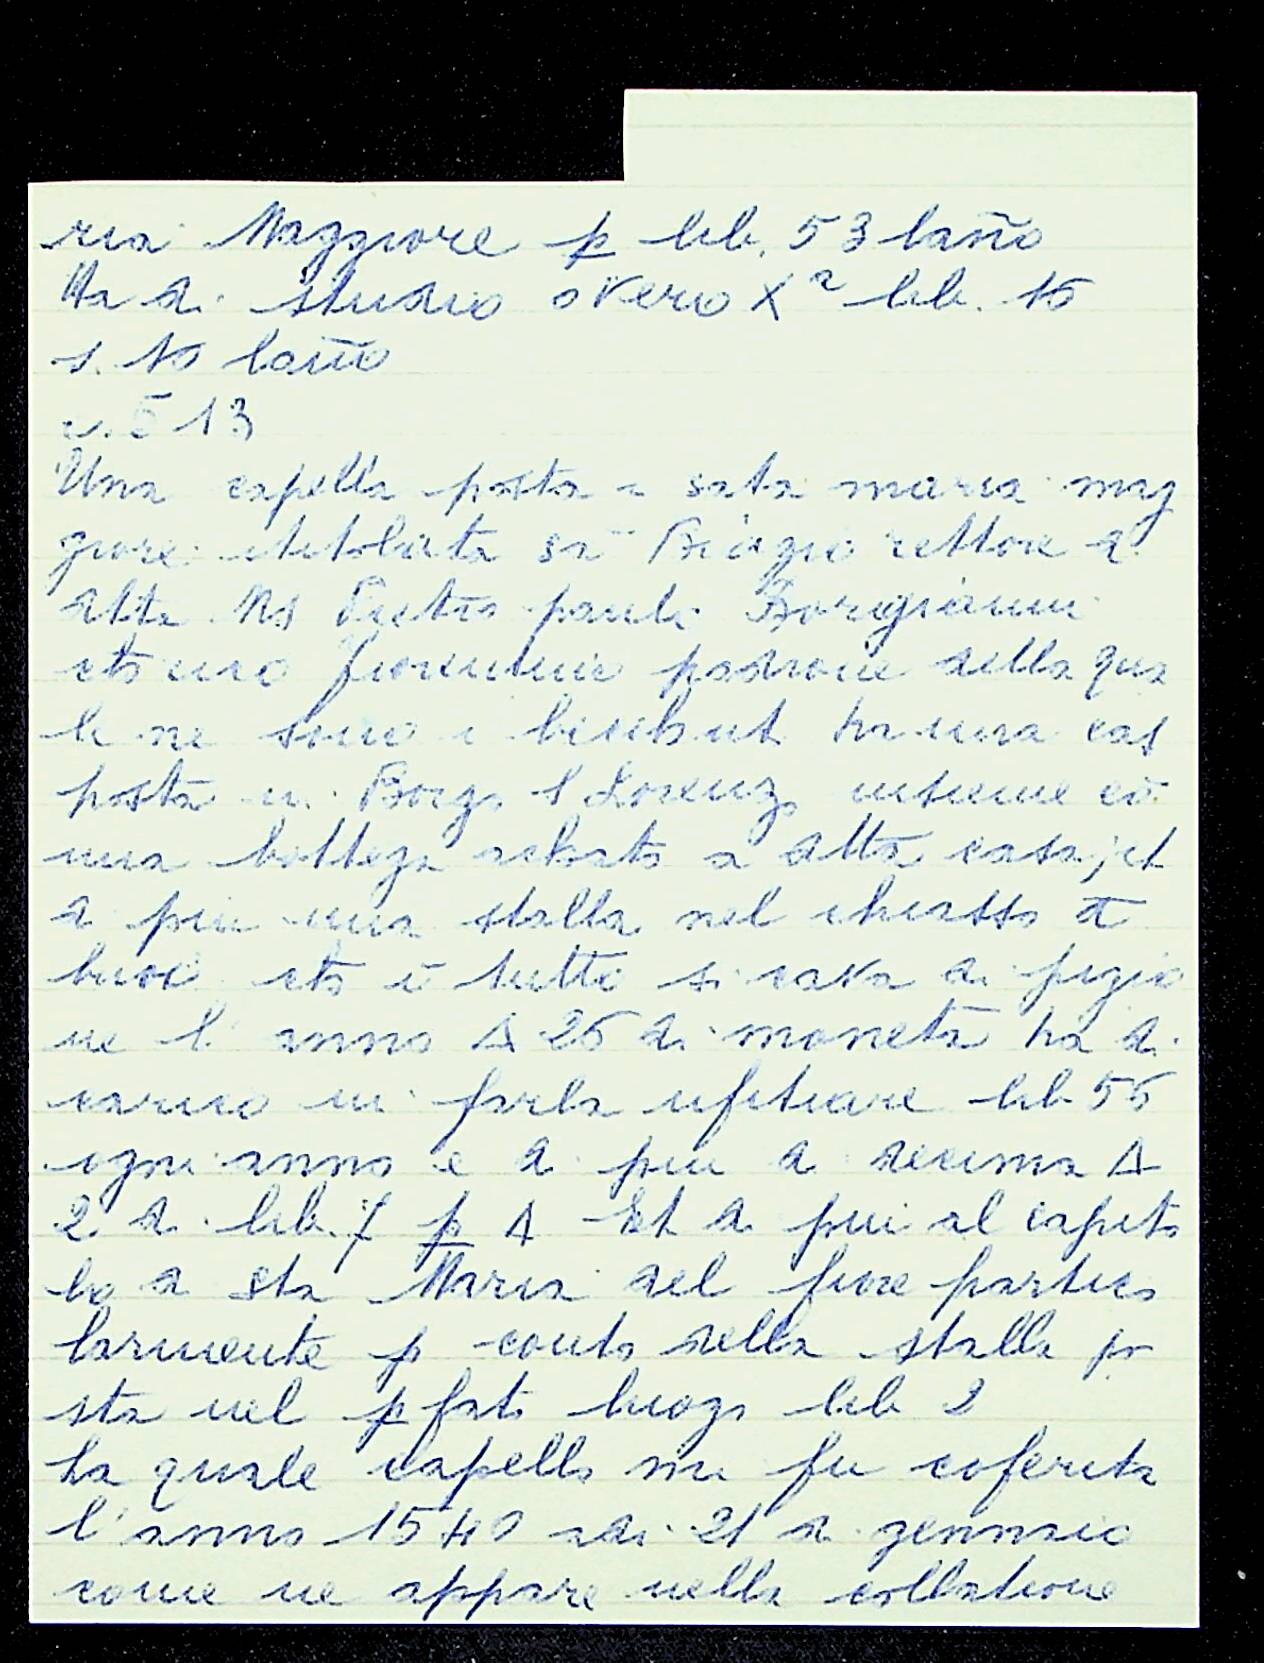 ria Maggiore p lib. 53 lañо
Ha di studio overo Xª lib. 10
s. 10 laño
c. 513
Una capella posta i sata maria mag
giore ititolata sã Biagio rettore d
dtta Ms Pietro paulo Borgianni
cto uno fiorentino padrone della qua
le ne sono i ha una cas
posta in Borgo S Lorenzo insieme cõ
una bottega acbato a dtta casa, et
di piu una stalla nel chiasso d
buoi cto ĩ tutto si cava di pigio
ne l' anno Δ 26 di moneta ha di
carico in farla ufitiare lib 56
ogni anno e di piu di decima Δ
2 di lib. 7 p Δ Et di piu al capito
lo di Sta Maria del fiore partico
larmente p conto della stalla po
sta nel pfato luogo lib 2
La quale capella mi fu coferita
l'anno 1540 adi 21 di gennaio
come ne appare nella collatione